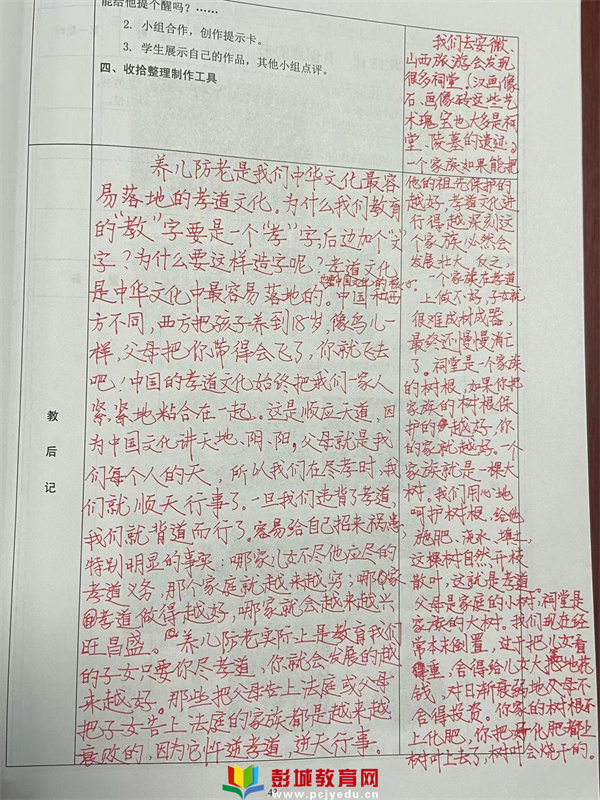 能给他提个醒吗？……
2. 小组合作，创作提示卡。
3. 学生展示自己的作品，其他小组点评。
四、收拾整理制作工具
教后记
养儿防老是我们中华文化最容
易落地的孝道文化。为什么我们教育
的“教”字要是一个“孝”字后边加个“文”
字？为什么要这样造字呢？孝道文化
是中华文化中最容易落地的。中国和西
方不同，西方把孩子养到18岁，像鸟儿一
样，父母把你带得会飞了，你就飞去
吧！中国的孝道文化始终把我们一家人
紧紧地粘合在一起。这是顺应天道，因
为中国文化讲天地、阴阳，父母就是我
们每个人的天，所以我们在尽孝时，我
们就顺天行事了。一旦我们违背了孝道，
我们就背道而行了。容易给自己招来祸患，
特别明显的事实：哪家儿女不尽他应尽的
孝道义务，那个家庭就越来越穷；哪家
孝道做得越好，哪家就会越来越兴
旺昌盛。养儿防老实际上是教育我们
的子女只要你尽孝道，你就会发展的越
来越好。那些把父母告上法庭或父母
把子女告上法庭的家族都是越来越
衰败的，因为它忤逆孝道，逆天行事。
我们去安徽、
山西旅游会发现
很多祠堂。（汉画像
石、画像砖这些艺
术瑰宝也大多是祠
堂、陵墓的遗迹。）
一个家族如果能把
他的祖先保护的
越好，孝道文化进
行得越深刻这
个家族必然会
发展壮大，反之，
一个家族在孝道
上做不好，子女就
很难成材成器，
最终还慢慢消亡
了。祠堂是一个家族
的树根，如果你把
家族的树根保
护的越好，你
的家就越好。一个
家族就是一棵大
树。我们用心地
呵护树根，给他
施肥、浇水、填土，
这棵树自然开枝
散叶，这就是孝道。
父母是家庭的小树，祠堂是
家族的大树。我们现在经
常本末倒置，过于把儿女看
得重，舍得给儿女大把地花
钱，对日渐衰弱地父母不
舍得投资。你家的树根不
上化肥，你把好化肥都上
树叶上去了，树叶会烧干的。
彭城教育网
www.pcjyedu.cn